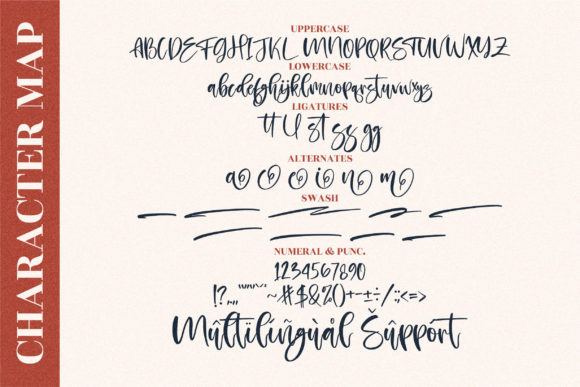 CHARACTER MAP
UPPERCASE
ABCDEFGHIJKLMNOPQRSTUVWXYZ
LOWERCASE
abcdefghijklmnopqrstuvwxyz
LIGATURES
tt ll st ss gg
ALTERNATES
a e o i n m
SWASH
NUMERAL & PUNC.
1234567890
!?.,,~#$&%()+-±÷/:;<=>
Mûltïlíñgùål Šûppört